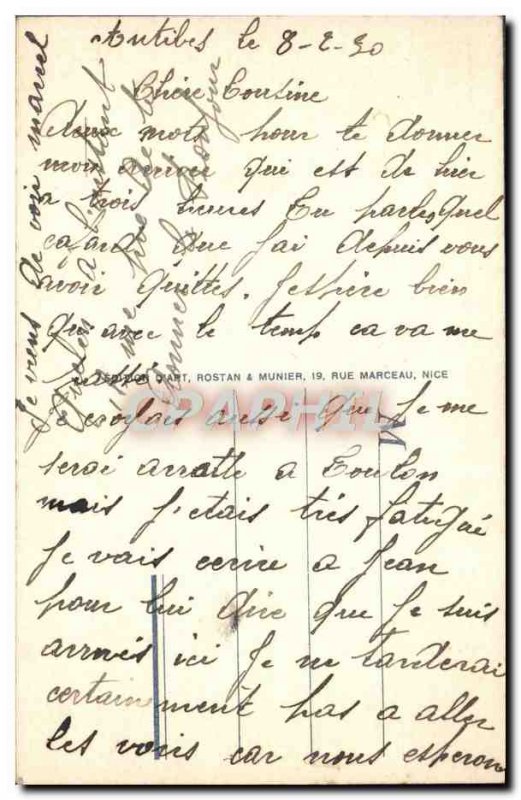 Antibes le 8-2-30
Chère Cousine
deux mots pour te donner
mon arrivé qui est de hier
a trois heures Tu parles quel
cafard que j'ai depuis vous
avoir quittes. J'espère bien
qu'avec le temp ca va me
EDITION D'ART, ROSTAN & MUNIER, 19, RUE MARCEAU, NICE
Je croyais aussi que Je me
serai arrette a Toulon
mais j'etais très fatigué
Je vais ecrire a Jean
pour lui dire que Je suis
arrivés ici Je ne tarderai
certainement pas a aller
les voirs car nous esperon
Je viens de voir marcel
a l'instant
il me
donner le bonjour